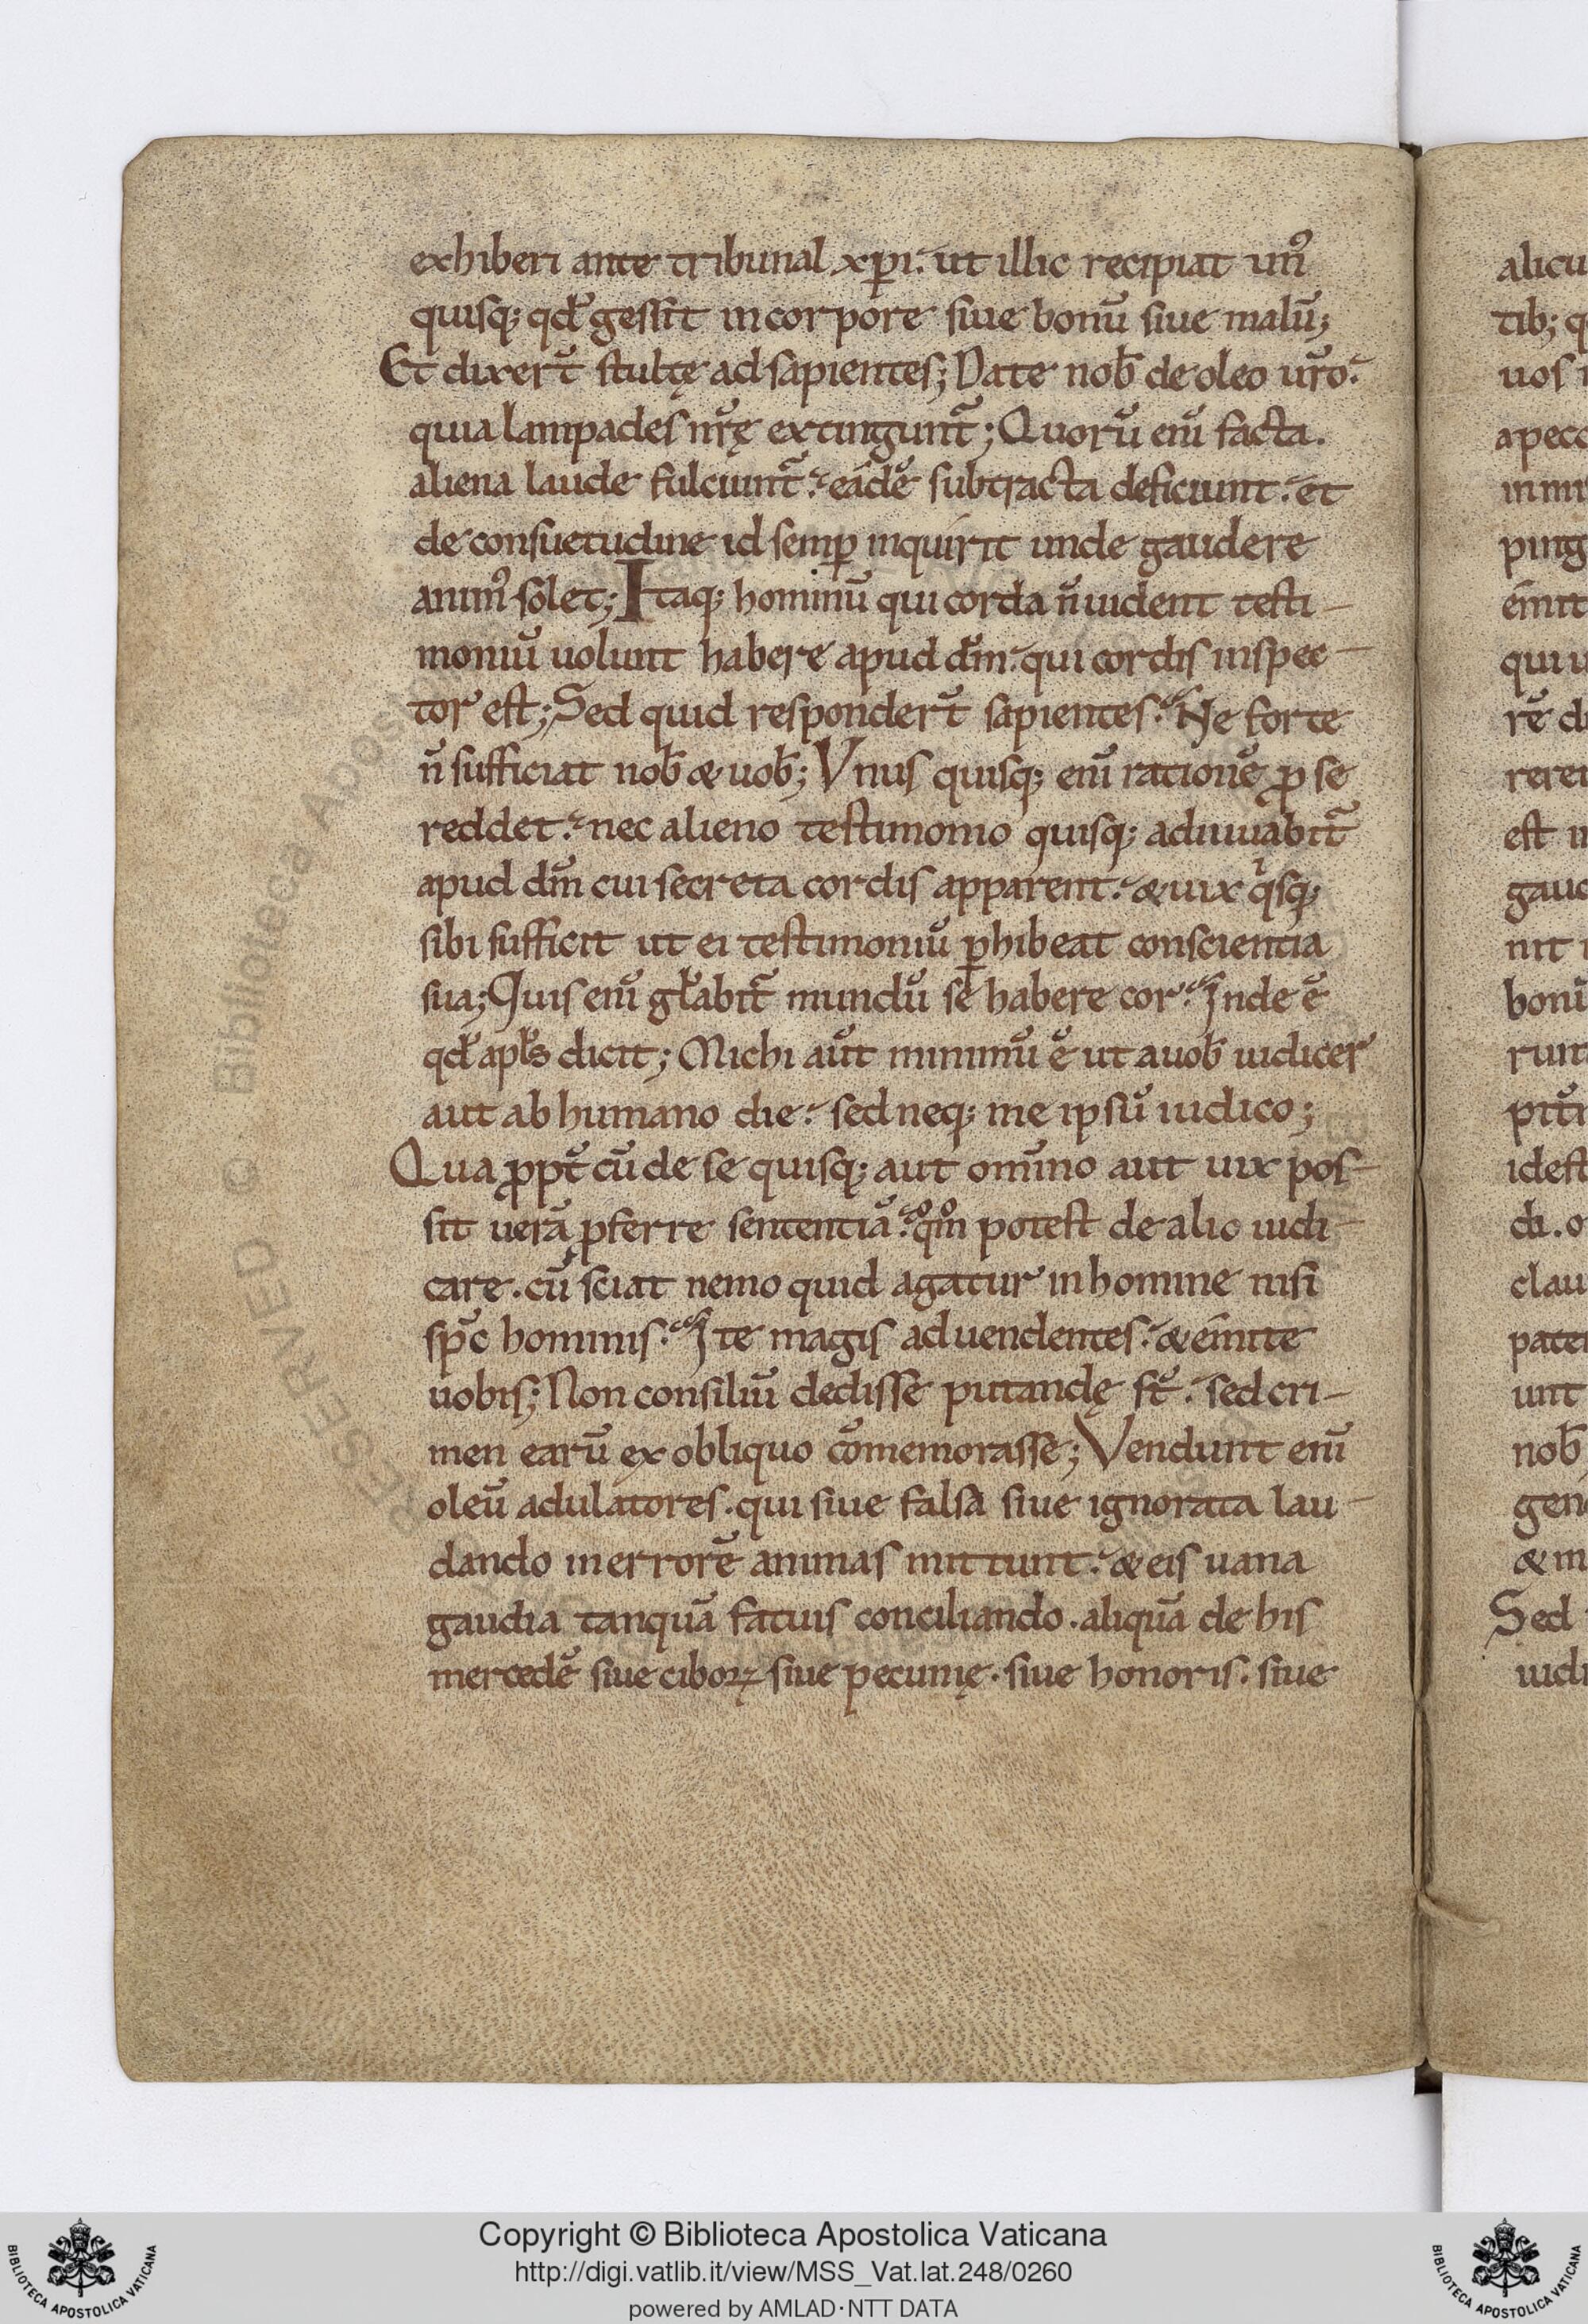 exhiberi ante tribunal xp̄i. ut illic recipiat unꝰ
quisq; qđ gessit in corpore siue bonū siue malū;
Et dixerт̄ stultę ad sapientes; Date nob̄ de oleo ur̄o.
quia lampades nr̄ę extingunt̄; Quorū enī facta.
aliena laude fulciunt̄. eádē subtracta deficiunt. et
de consuetudine id semꝑ inquirit unde gaudere
animꝰ solet; Itaq; hominū qui corda n̄ uident testi-
moniū uolunt habere apud dm̄. qui cordis inspec-
tor est; Sed quid responderт̄ sapientes. Ne forte
n̄ sufficiat nob̄ & uob̄; Vnus quisq; enī rationē ꝓ se
reddet. nec alieno testimonio quisq; adiuuabit̄
apud dm̄ cui secreta cordis apparent. & uix qisq;
sibi sufficit ut ei testimoniū ꝑhibeat conscientia
sua; Quis enī gl̄abit̄ mundū se habere cor. Inde ē
qđ apl̄s dicit; Michi aūt minimū ē ut a uob̄ iudicer
aut ab humano die. sed neq; me ipsū iudico;
Qua ꝓpt̄ cū de se quisq; aut omīno aut uix pos-
sit uerā ꝓferre sententiā. qomo potest de alio iudi-
care. cū sciat nemo quid agatur in homine nisi
sp̄c hominis. Ite magis ad uendentes. & émite
uobis; Non consiliū dedisse putandę st̄. sed cri-
men earū ex obliquo cōmemorasse; Vendunt enī
oleū adulatores. qui siue falsa siue ignorata lau-
dando in errorē animas mittunt. & eis uana
gaudia tanquā fatuis conciliando. aliquā de his
mercedē siue ciboꝝ siue pecunię. siue honoris. siue
alicu
tib; q
uos
apecc
émit
qui u
rē di
rerer
est
gaud
nit
bonū
runt
idest
di. o
clau
pate
unt
nob̄
gen
& m
Sed
iudi
RESERVED © Biblioteca Apos
BIBLIOTECA APOSTOLICA VATICANA
Copyright © Biblioteca Apostolica Vaticana
http://digi.vatlib.it/view/MSS_Vat.lat.248/0260
powered by AMLAD·NTT DATA
BIBLIOTECA APOSTOLICA VATICANA